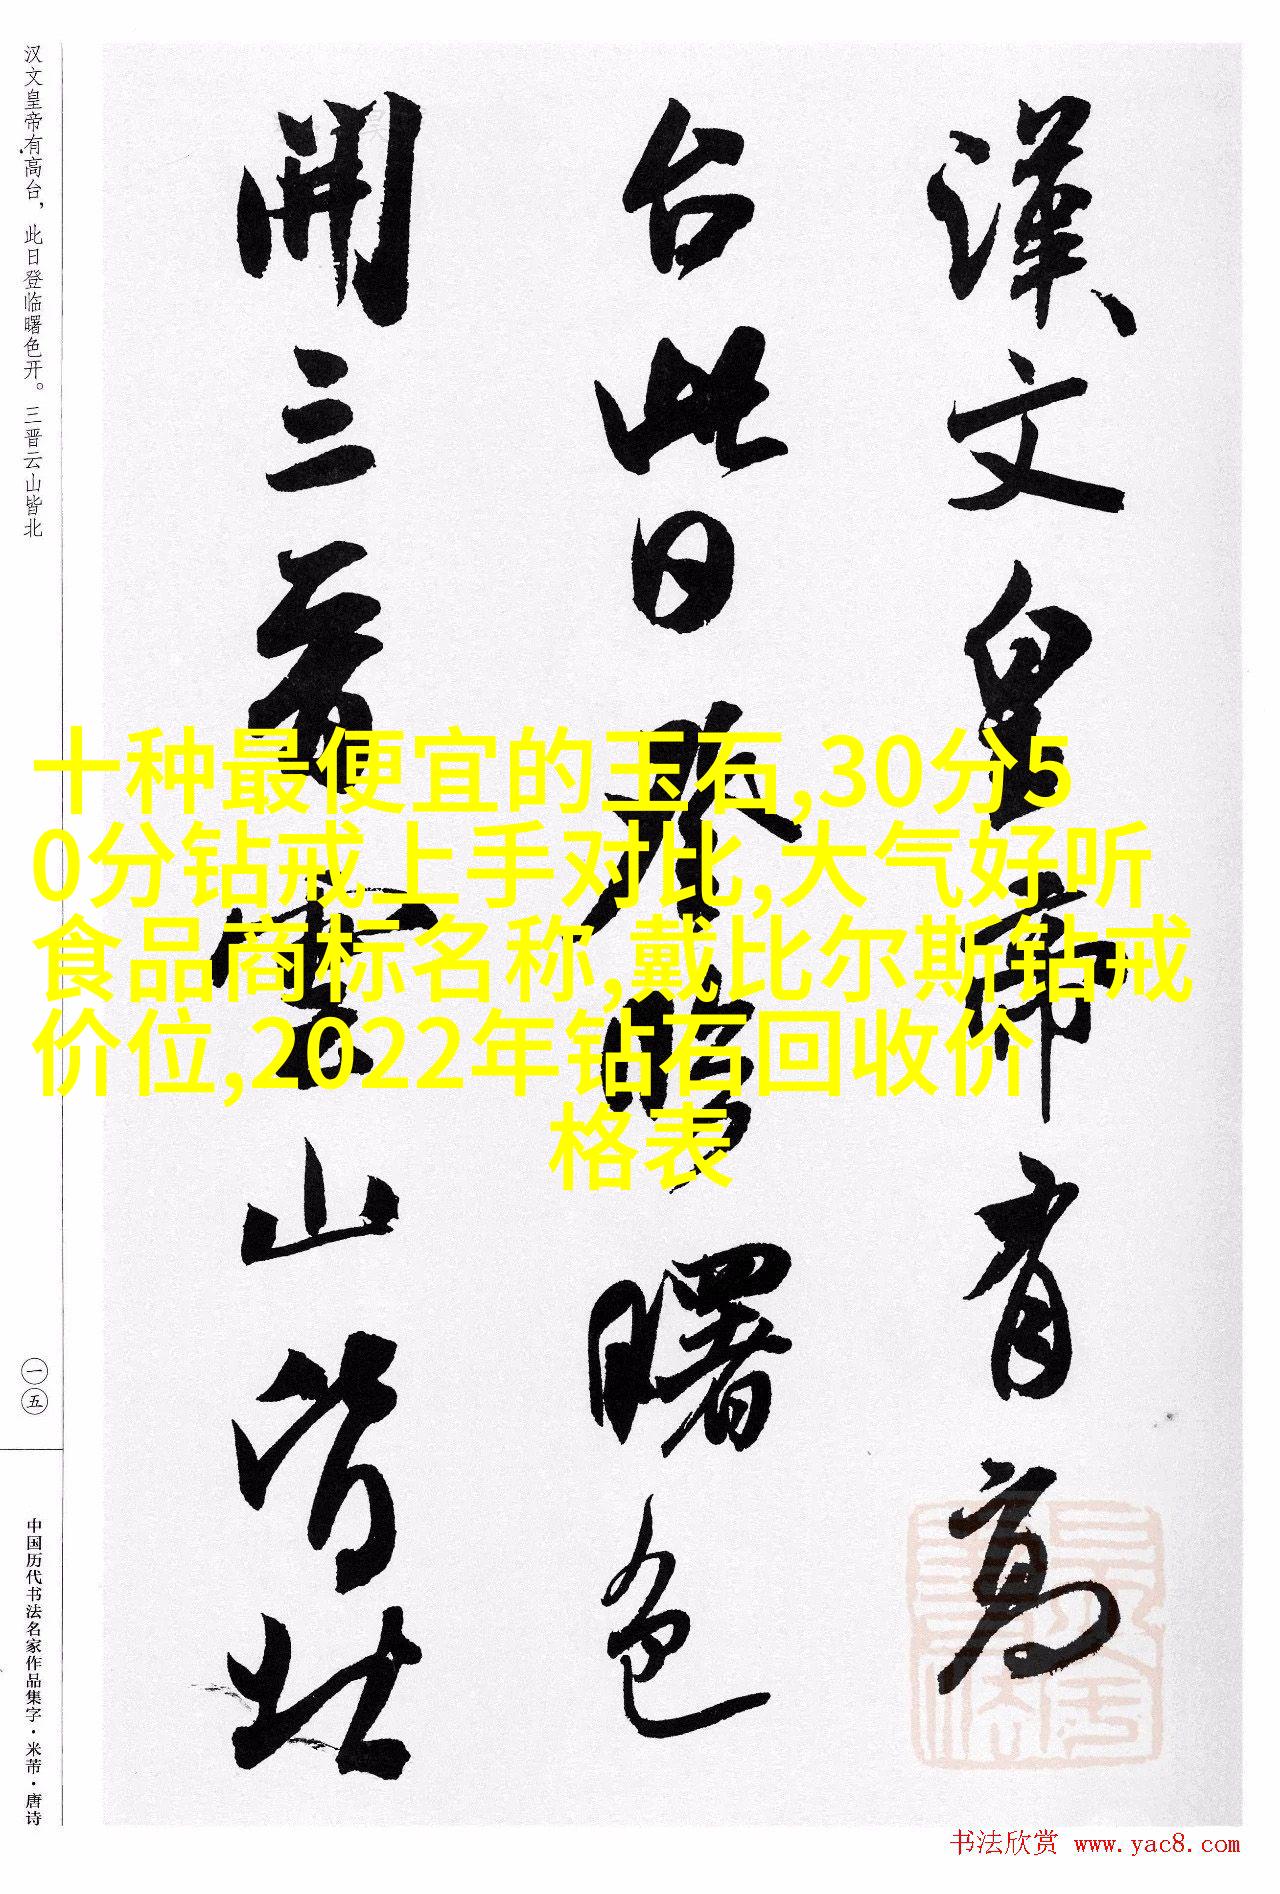 漢文皇帝有高
台此日登臨曙色
開三晉雲山皆北
汉文皇帝有高台，此日登临曙色开。三晋云山皆北
一五
中国历代书法名家作品集字·米芾·唐诗
十种最便宜的玉石,30分5
0分钻戒上手对比,大气好听
食品商标名称,戴比尔斯钻戒
价位,2022年钻石回收价
格表
书法欣赏 www.yac8.com